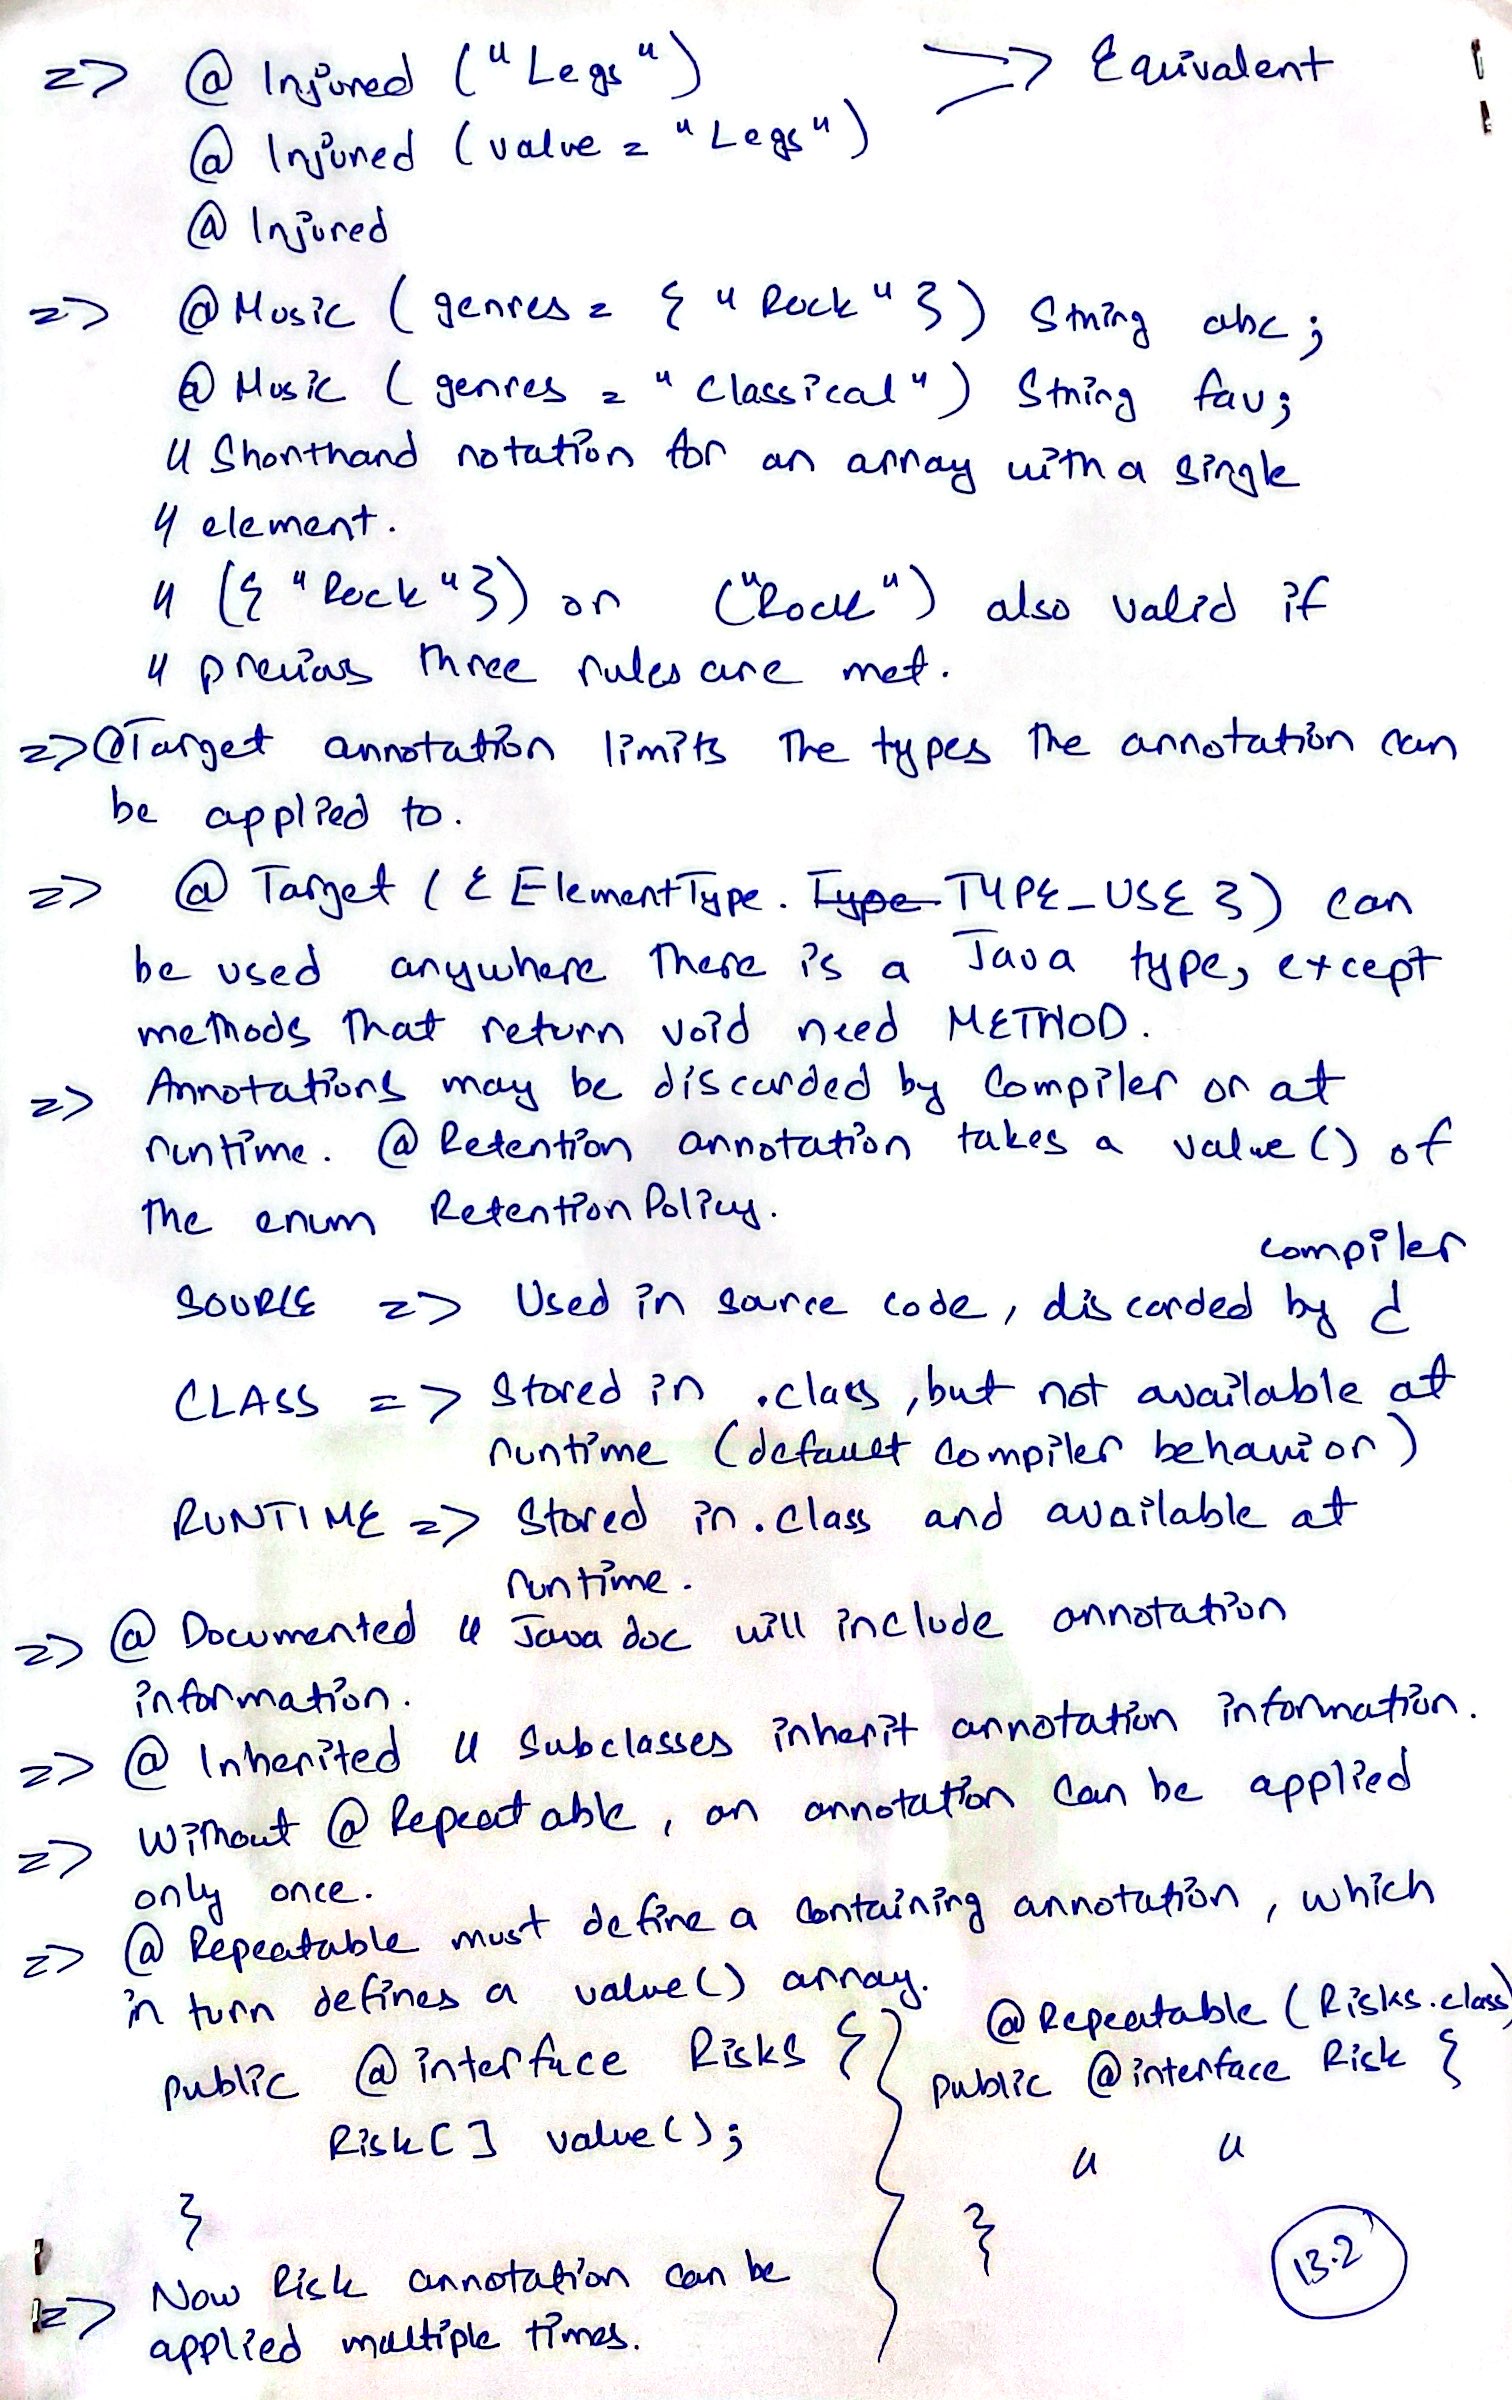 => @ Injured ("Legs") > => Equivalent
@ Injured (value = "Legs")
@ Injured
=> @ Music ( genres = { "Rock" } ) String abc ;
@ Music ( genres = "Classical" ) String fav;
// Shorthand notation for an array with a single
// element.
// ({ "Rock" }) or ("Rock") also valid if
// previous three rules are met.
=> @Target annotation limits the types the annotation can
be applied to.
=> @ Target ( { ElementType. Type TYPE_USE } ) can
be used anywhere there is a Java type, except
methods that return void need METHOD.
=> Annotations may be discarded by Compiler or at
runtime. @ Retention annotation takes a value () of
the enum Retention Policy.
compiler
SOURCE => Used in source code, discarded by
CLASS => Stored in .class, but not available at
runtime (default compiler behavior)
RUNTIME => Stored in .class and available at
runtime.
=> @ Documented // Java doc will include annotation
information.
=> @ Inherited // Subclasses inherit annotation information.
=> Without @ Repeatable, an annotation can be applied
only once.
=> @ Repeatable must define a containing annotation, which
in turn defines a value() array.
public @ interface Risks {
Risk[] value();
}
@ Repeatable (Risks.class)
public @ interface Risk {
" "
}
=> Now Risk annotation can be
applied multiple times.
13.2